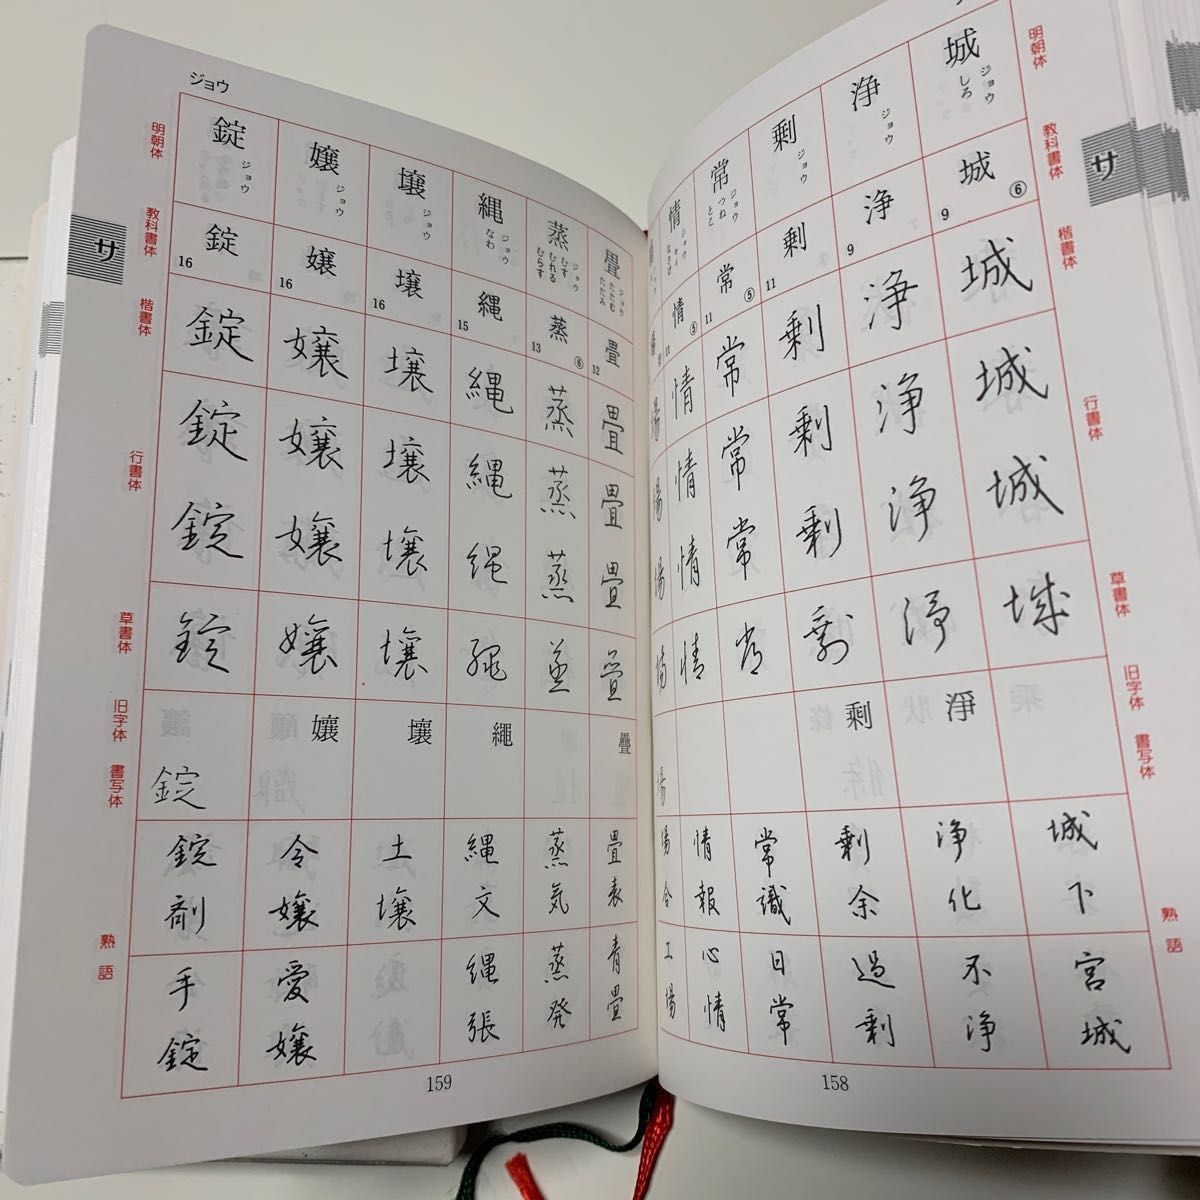 サ
明朝体
教科書体
楷書体
行書体
草書体
旧字体
書写体
熟語
城
ジョウ
しろ
城
⑥
9
城
城
城
城
城下
宮城
浄
ジョウ
浄
9
浄
浄
浄
浄
淨
浄化
不浄
剰
ジョウ
剰
11
剰
剰
剰
剰
剩
剰余
過剰
常
ジョウ
つね
とこ
常
⑤
11
常
常
常
常
常識
日常
情
ジョウ
セイ
なさけ
情
⑤
11
情
情
情
情
情報
心情
場
場
場
場
場
場合
工場
158
ジョウ
サ
明朝体
教科書体
楷書体
行書体
草書体
旧字体
書写体
熟語
畳
ジョウ
たたむ
たたみ
畳
12
畳
畳
畳
畳
疊
畳表
青畳
蒸
ジョウ
むす
むれる
むらす
蒸
⑥
13
蒸
蒸
蒸
蒸
蒸気
蒸発
縄
ジョウ
なわ
縄
15
縄
縄
縄
縄
繩
縄文
縄張
壌
ジョウ
壌
16
壌
壌
壌
壌
壤
土壌
嬢
ジョウ
嬢
16
嬢
嬢
嬢
嬢
孃
令嬢
愛嬢
錠
ジョウ
錠
16
錠
錠
錠
錠
錠
錠剤
手錠
159